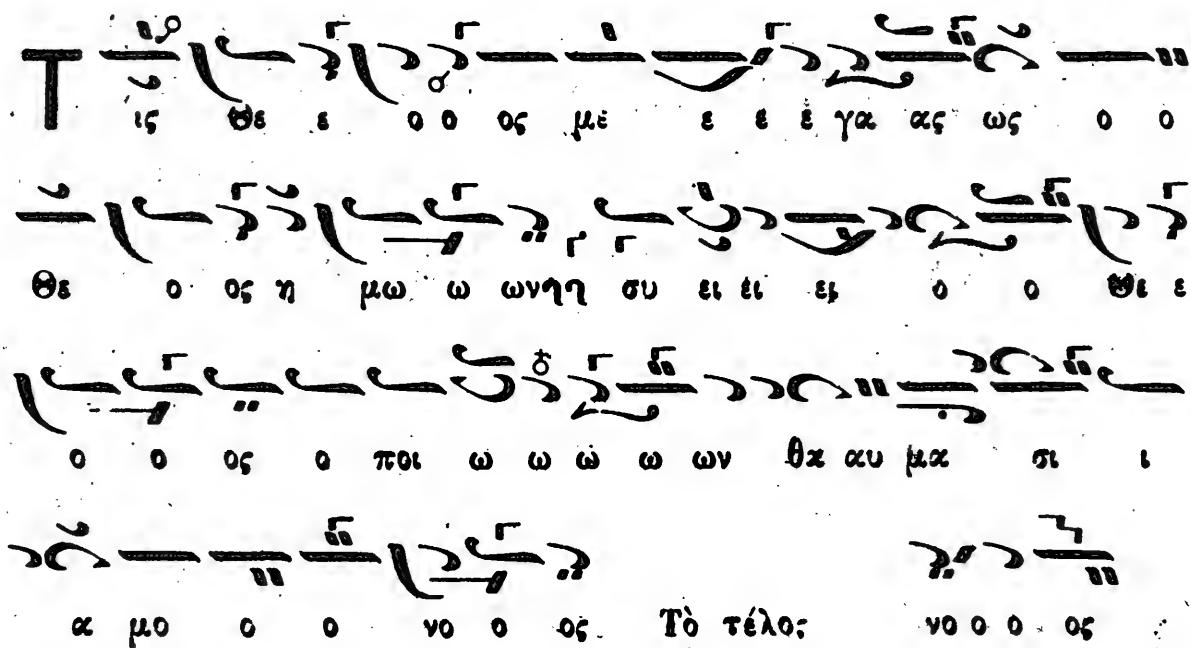 Τ ις Θε ε ο ο ος με ε ε ε γα ας ως ο ο
Θε ο ος η μω ω ωνηη συ ει ει ει ο ο Θε ε
ο ο ος ο ποι ω ω ω ω ων θα αυ μα σι ι
α μο ο ο νο ο ος Τὸ τέλος νο ο ο ος